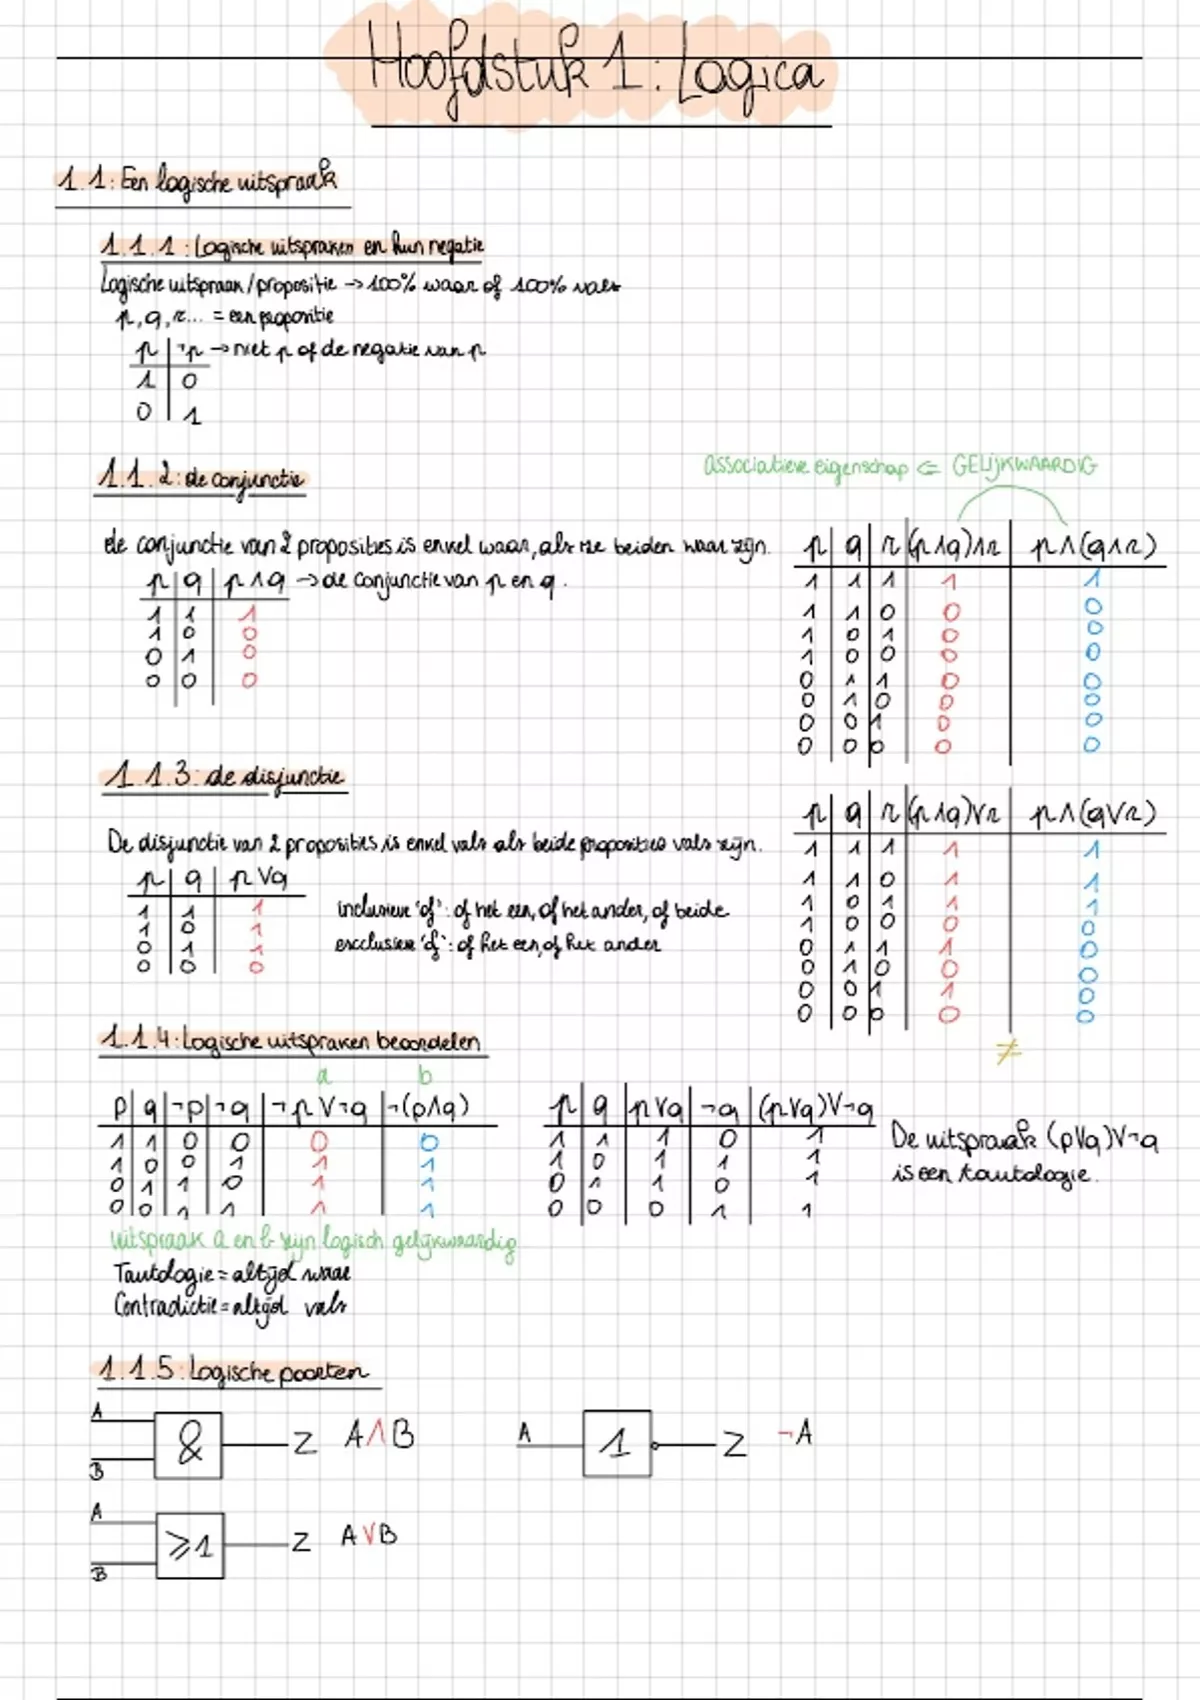 Hoofdstuk 1: Logica
1.1: Een logische uitspraak
1.1.1: Logische uitspraken en hun negatie
Logische uitspraak/propositie → 100% waar of 100% vals
p, q, r... = een propositie
p | ¬p → niet p of de negatie van p
1 | 0
0 | 1
1.1.2: de conjunctie
de conjunctie van 2 proposities is enkel waar, als ze beiden waar zijn.
p | q | p ∧ q → de conjunctie van p en q.
1 | 1 | 1
1 | 0 | 0
0 | 1 | 0
0 | 0 | 0
associatieve eigenschap ⇐ GELIJKWAARDIG
p | q | r | (p∧q)∧r | p∧(q∧r)
1 | 1 | 1 | 1 | 1
1 | 1 | 0 | 0 | 0
1 | 0 | 1 | 0 | 0
1 | 0 | 0 | 0 | 0
0 | 1 | 1 | 0 | 0
0 | 1 | 0 | 0 | 0
0 | 0 | 1 | 0 | 0
0 | 0 | 0 | 0 | 0
1.1.3: de disjunctie
De disjunctie van 2 proposities is enkel vals als beide proposities vals zijn.
p | q | p ∨ q
1 | 1 | 1
1 | 0 | 1
0 | 1 | 1
0 | 0 | 0
inclusieve 'of': of het een, of het ander, of beide
excclusieve 'of': of het een, of het ander
p | q | r | (p∧q)∨r | p∧(q∨r)
1 | 1 | 1 | 1 | 1
1 | 1 | 0 | 1 | 1
1 | 0 | 1 | 1 | 1
1 | 0 | 0 | 0 | 0
0 | 1 | 1 | 1 | 0
0 | 1 | 0 | 0 | 0
0 | 0 | 1 | 1 | 0
0 | 0 | 0 | 0 | 0
≠
1.1.4: Logische uitspraken beoordelen
a b
p | q | ¬p | ¬q | ¬p ∨ ¬q | ¬(p∧q)
1 | 1 | 0 | 0 | 0 | 0
1 | 0 | 0 | 1 | 1 | 1
0 | 1 | 1 | 0 | 1 | 1
0 | 0 | 1 | 1 | 1 | 1
uitspraak a en b zijn logisch gelijkwaardig
Tautologie = altijd waar
Contradictie = altijd vals
p | q | p ∨ q | ¬q | (p∨q)∨¬q
1 | 1 | 1 | 0 | 1
1 | 0 | 1 | 1 | 1
0 | 1 | 1 | 0 | 1
0 | 0 | 0 | 1 | 1
De uitspraak (p∨q)∨¬q
is een tautologie.
1.1.5: Logische poorten
A
& Z A∧B
B
A 1 Z ¬A
A
≥1 Z A∨B
B